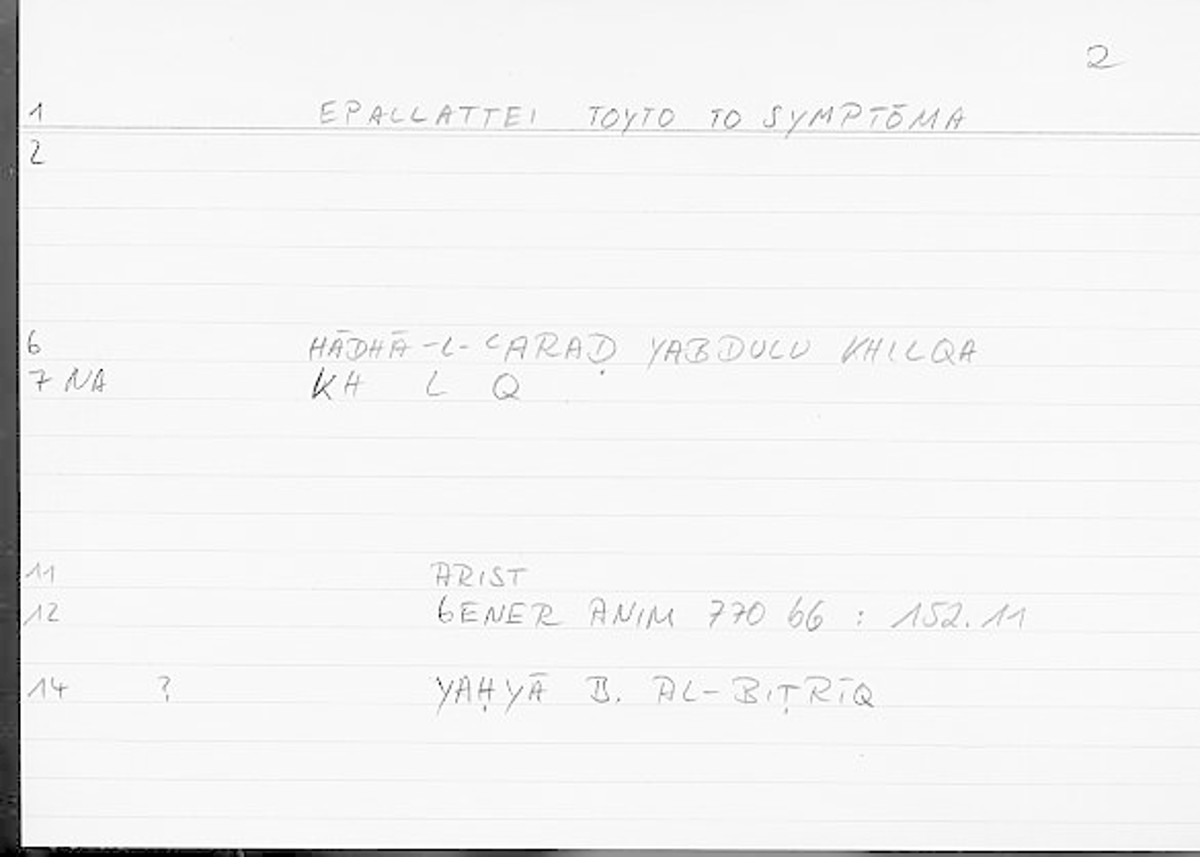 2
1 EPALLATTEI TOYTO TO SYMPTŌMA
2
6 HĀDHĀ-L-ʿARAḌ YABDULU KHILQA
7 NA KH L Q
11 ARIST
12 GENER ANIM 770 b6 : 152.11
14 ? YAḤYĀ B. AL-BIṬRĪQ